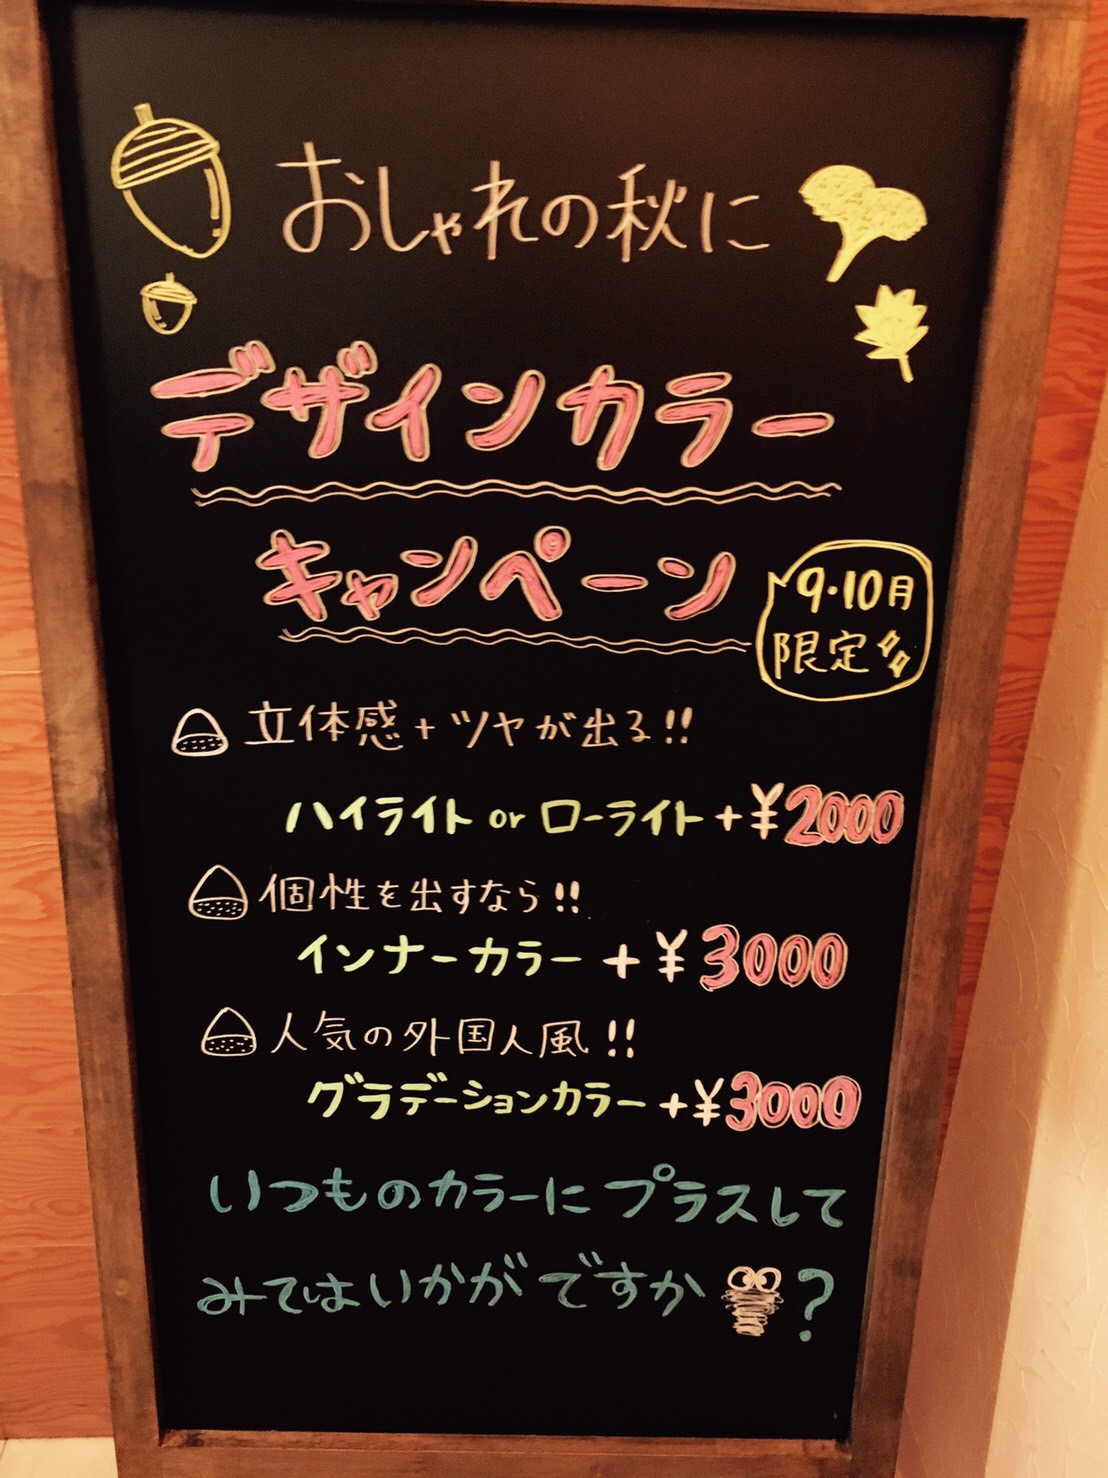 おしゃれの秋に
デザインカラー
キャンペーン
9・10月
限定
立体感+ツヤが出る!!
ハイライト or ローライト +¥2000
個性を出すなら!!
インナーカラー +¥3000
人気の外国人風!!
グラデーションカラー +¥3000
いつものカラーにプラスして
みてはいかがですか?